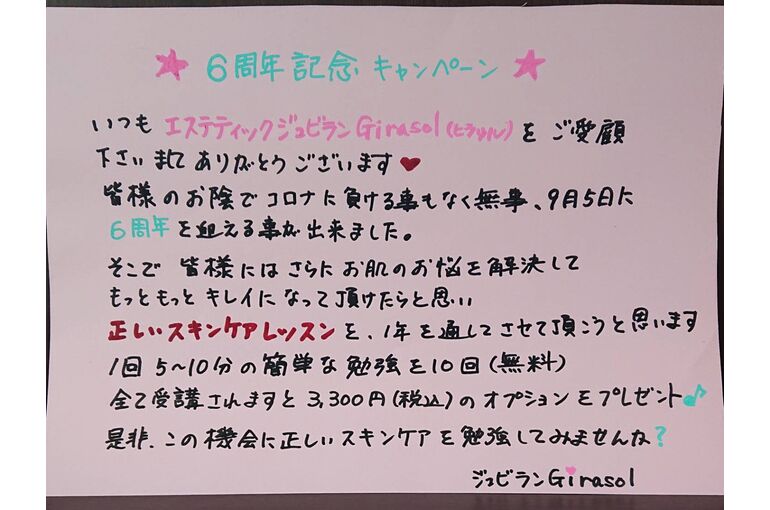 ★ 6周年記念 キャンペーン ★
いつも エステティックジュビランGirasol(ヒラソル)を ご愛顧
下さいまして ありがとうございます♥
皆様のお陰で コロナに負ける事もなく無事、9月5日に
6周年を迎える事が出来ました。
そこで 皆様には さらに お肌のお悩を解決して
もっともっと キレイに なって頂けたらと思い
正しいスキンケアレッスンを、1年を通してさせて頂こうと思います
1回 5~10分の簡単な勉強を10回(無料)
全て受講されますと 3,300円(税込)のオプションをプレゼント♪
是非、この機会に正しいスキンケアを勉強してみませんか?
ジュビランGirasol